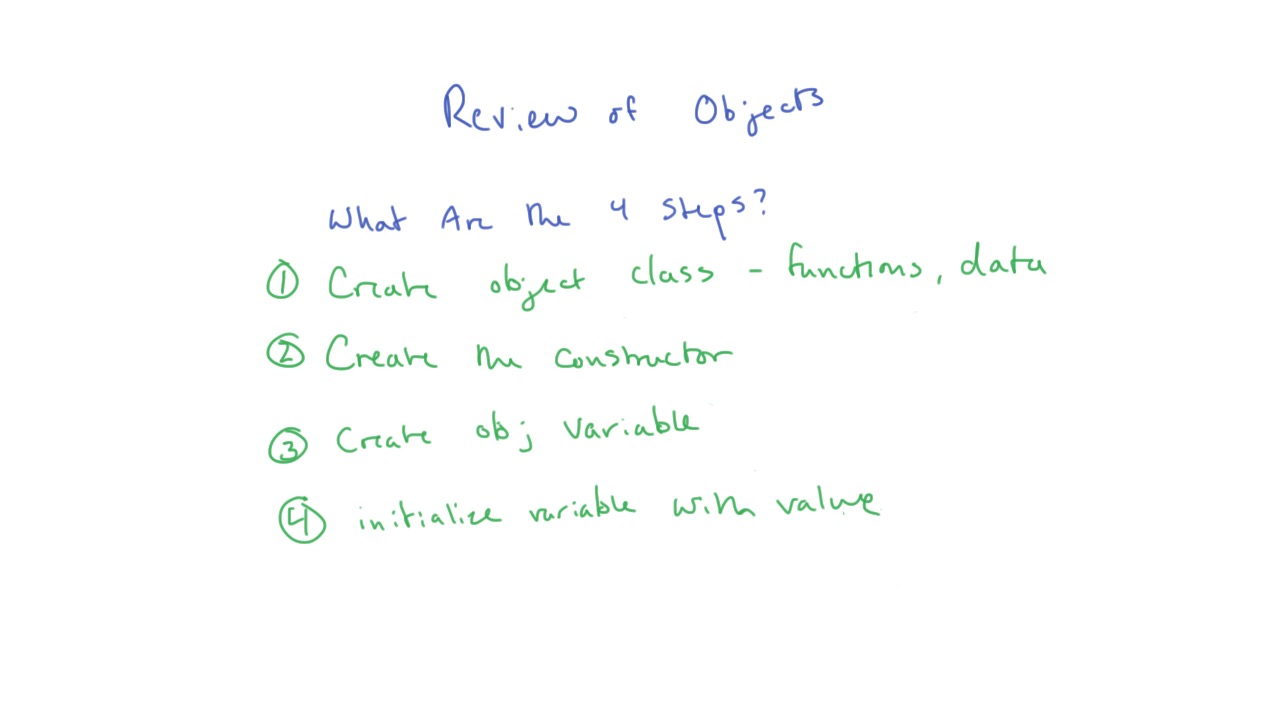 Review of Objects
What Are the 4 steps?
① Create object class - functions, data
② Create the constructor
③ Create obj variable
④ initialize variable with value